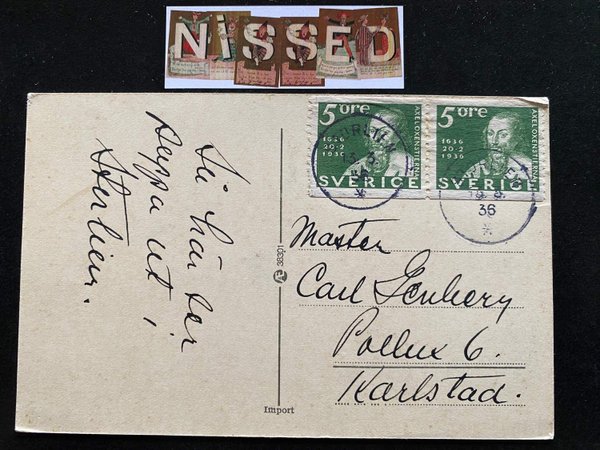 NiSSED
5 öre
1636
20-2
1936
AXEL OXENSTIERNA
SVERIGE
5 öre
1636
20-2
1936
AXEL OXENSTIERNA
SVERIGE
36
Så här ser
ut i
Storlien.
Master
Carl Genberg
Pollux 6.
Karlstad.
38301
Import